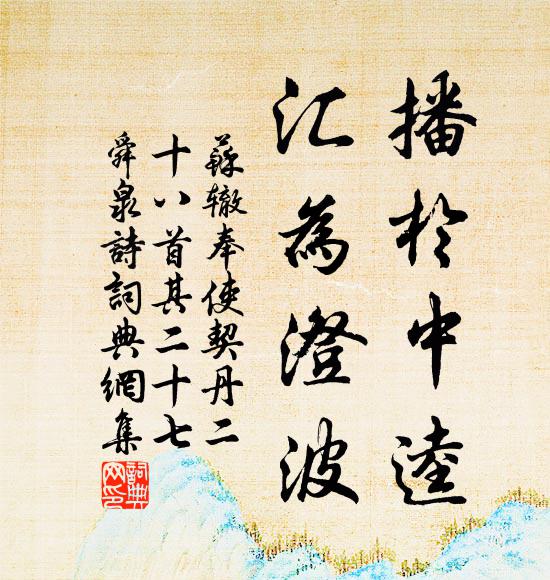 播於中逵
汇為澄波
蘇辙奉使契丹二
十八首其二十七
舜泉詩詞典網集
詞典网印